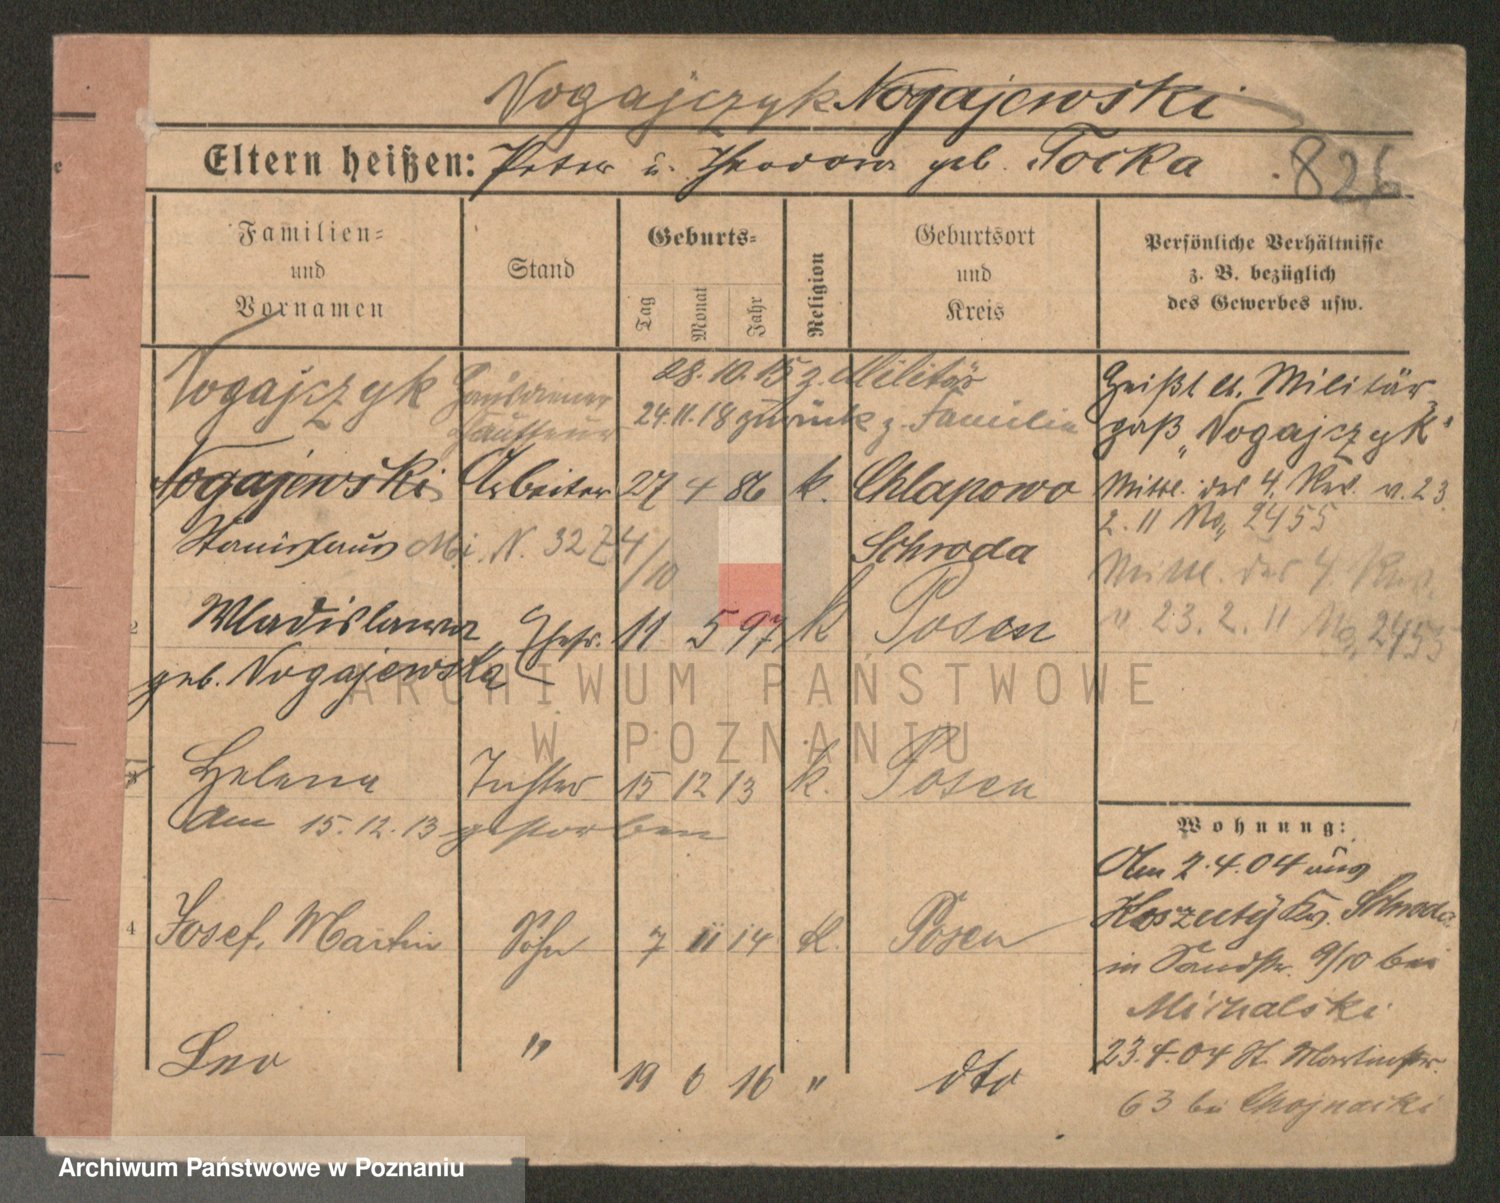 Nogajczyk Nogajewski
Eltern heißen: Peter u. Theodora geb. Tocka
826.
Familien-
und
Vornamen
Stand
Geburts-
Tag
Monat
Jahr
Religion
Geburtsort
und
Kreis
Persönliche Verhältnisse
z. B. bezüglich
des Gewerbes usw.
Nogajczyk Hausdiener
28.10.15 z. Militär
24.11.18 zurück z. Familie
Heißt lt. Militär
paß „Nogajczyk"
Nogajewski Arbeiter 27 4 86 k. Chlapowo
Stanislaus
Schroda
Mittl. des 4. Rev. v. 23.
2. 11 No 2455
Mittl. des 4. Rev.
v. 23. 2. 11 No 2455
2 Wladislawa Ehefr. 11 5 97 k Posen
geb. Nogajewska
3 Helena Tochter 15 12 13 k. Posen
am 15.12.13 gestorben
4 Josef, Martin Sohn 7 11 14 k. Posen
Leo " 19 6 16 " dto
Wohnung:
Am 2.4.04 aus
Koszuty Kr. Schroda
in Sandstr. 9/10 bei
Michalski
23.4.04 St. Martinstr.
63 bei Chojnacki
ARCHIWUM PAŃSTWOWE
W POZNANIU
Archiwum Państwowe w Poznaniu